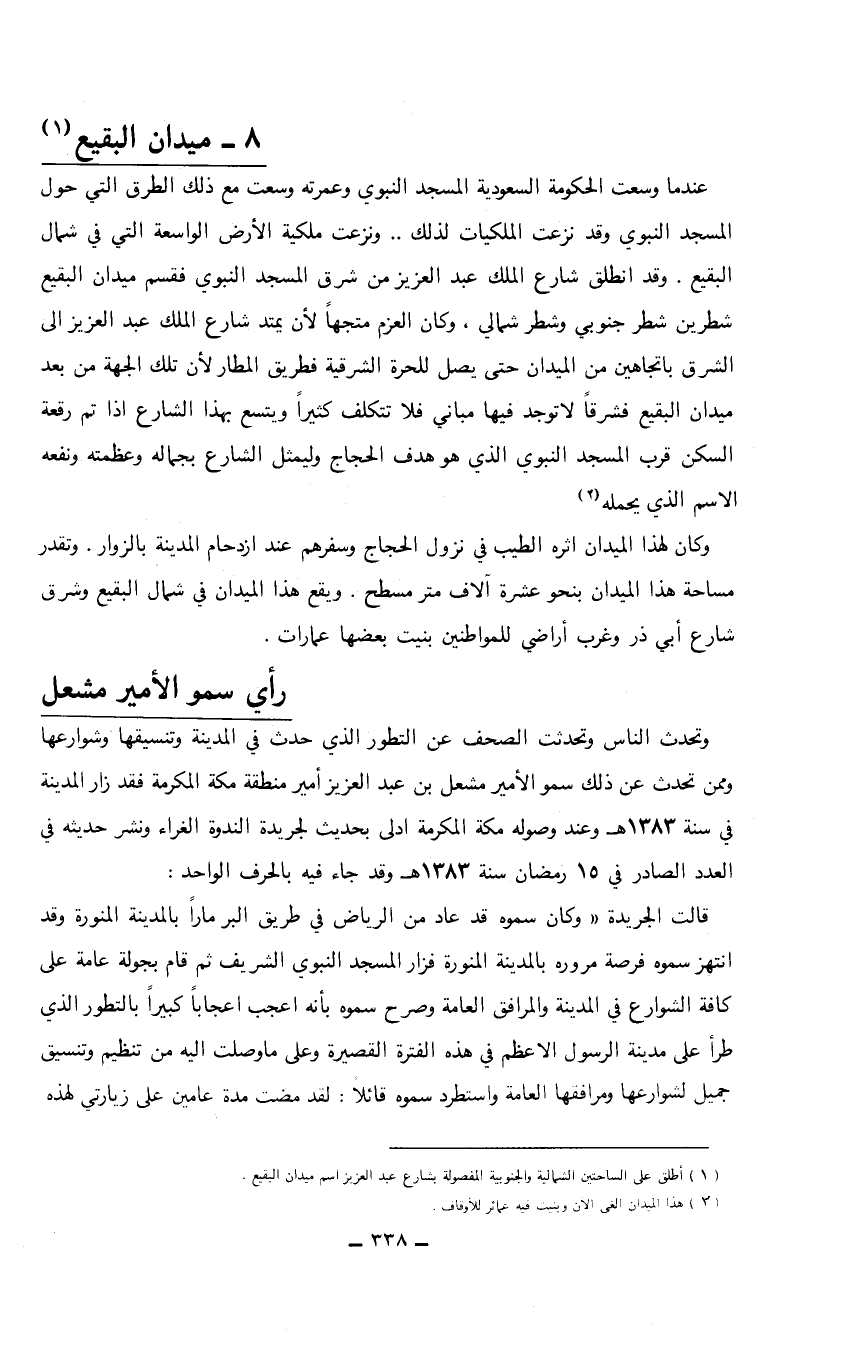 ٨ ـ ميدان البقيع (١)
عندما وسعت الحكومة السعودية المسجد النبوي وعمرته وسعت مع ذلك الطرق التي حول
المسجد النبوي وقد نزعت الملكيات لذلك .. ونزعت ملكية الأرض الواسعة التي في شمال
البقيع . وقد انطلق شارع الملك عبد العزيز من شرق المسجد النبوي فقسم ميدان البقيع
شطرين شطر جنوبي وشطر شمالي ، وكان العزم متجهاً لأن يمتد شارع الملك عبد العزيز الى
الشرق باتجاهين من الميدان حتى يصل للحرة الشرقية فطريق المطار لأن تلك الجهة من بعد
ميدان البقيع فشرقاً لاتوجد فيها مباني فلا تتكلف كثيراً ويتسع بهذا الشارع اذا تم رقعة
السكن قرب المسجد النبوي الذي هو هدف الحجاج وليمثل الشارع بجماله وعظمته ونفعه
الاسم الذي يحمله (٢)
وكان لهذا الميدان اثره الطيب في نزول الحجاج وسفرهم عند ازدحام المدينة بالزوار . وتقدر
مساحة هذا الميدان بنحو عشرة آلاف متر مسطح . ويقع هذا الميدان في شمال البقيع وشرق
شارع أبي ذر وغرب أراضي للمواطنين بنيت بعضها عمارات .
رأي سمو الأمير مشعل
وتحدث الناس وتحدثت الصحف عن التطور الذي حدث في المدينة وتنسيقها وشوارعها
وممن تحدث عن ذلك سمو الأمير مشعل بن عبد العزيز أمير منطقة مكة المكرمة فقد زار المدينة
في سنة ١٣٨٣هـ وعند وصوله مكة المكرمة ادلى بحديث لجريدة الندوة الغراء ونشر حديثه في
العدد الصادر في ١٥ رمضان سنة ١٣٨٣هـ وقد جاء فيه بالحرف الواحد :
قالت الجريدة « وكان سموه قد عاد من الرياض في طريق البر ماراً بالمدينة المنورة وقد
انتهز سموه فرصة مروره بالمدينة المنورة فزار المسجد النبوي الشريف ثم قام بجولة عامة على
كافة الشوارع في المدينة والمرافق العامة وصرح سموه بأنه اعجب اعجاباً كبيراً بالتطور الذي
طرأ على مدينة الرسول الاعظم في هذه الفترة القصيرة وعلى ماوصلت اليه من تنظيم وتنسيق
جميل لشوارعها ومرافقها العامة واستطرد سموه قائلا : لقد مضت مدة عامين على زيارتي لهذه
( ١ ) أطلق على الساحتين الشمالية والجنوبية المفصولة بشارع عبد العزيز اسم ميدان البقيع .
( ٢ ) هذا الميدان الغي الان وبنيت فيه عمائر للأوقاف .
ـ ٣٣٨ ـ